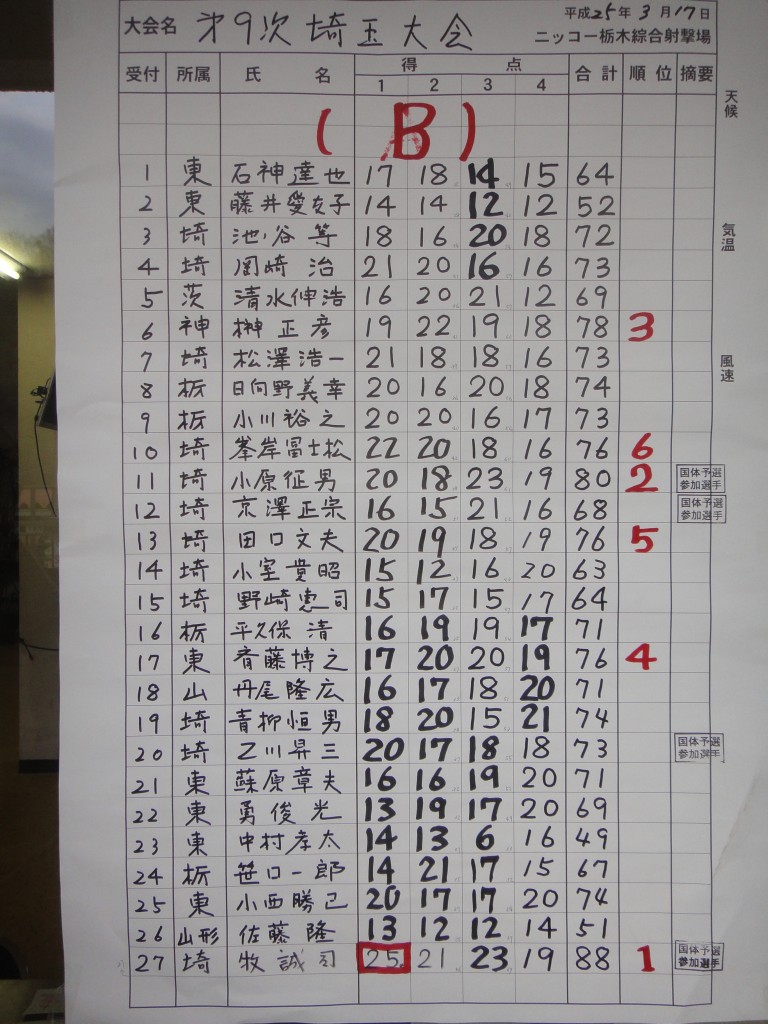 平成25年3月17日
大会名 第9次埼玉大会 ニッコー栃木綜合射撃場
受付 所属 氏名 得点 合計 順位 摘要
1 2 3 4
天候
(B)
1 東 石神達也 17 18 14 15 64
2 東 藤井愛友子 14 14 12 12 52
3 埼 池谷等 18 16 20 18 72
気温
4 埼 岡崎治 21 20 16 16 73
5 茨 清水伸浩 16 20 21 12 69
6 神 榊正彦 19 22 19 18 78 3
7 埼 松澤浩一 21 18 18 16 73
風速
8 栃 日向野義幸 20 16 20 18 74
9 栃 小川裕之 20 20 16 17 73
10 埼 峯岸冨士松 22 20 18 16 76 6
11 埼 小原征男 20 18 23 19 80 2 国体予選参加選手
12 埼 京澤正宗 16 15 21 16 68 国体予選参加選手
13 埼 田口文夫 20 19 18 19 76 5
14 埼 小室貴昭 15 12 16 20 63
15 埼 野崎恵司 15 17 15 17 64
16 栃 平久保清 16 19 19 17 71
17 東 斉藤博之 17 20 20 19 76 4
18 山 丹尾隆広 16 17 18 20 71
19 埼 青柳恒男 18 20 15 21 74
20 埼 乙川昇三 20 17 18 18 73 国体予選参加選手
21 東 蘇原章夫 16 16 19 20 71
22 東 勇俊光 13 19 17 20 69
23 東 中村孝太 14 13 6 16 49
24 栃 笹口一郎 14 21 17 15 67
25 東 小西勝己 20 17 17 20 74
26 山形 佐藤隆 13 12 12 14 51
27 埼 牧誠司 25 21 23 19 88 1 国体予選参加選手